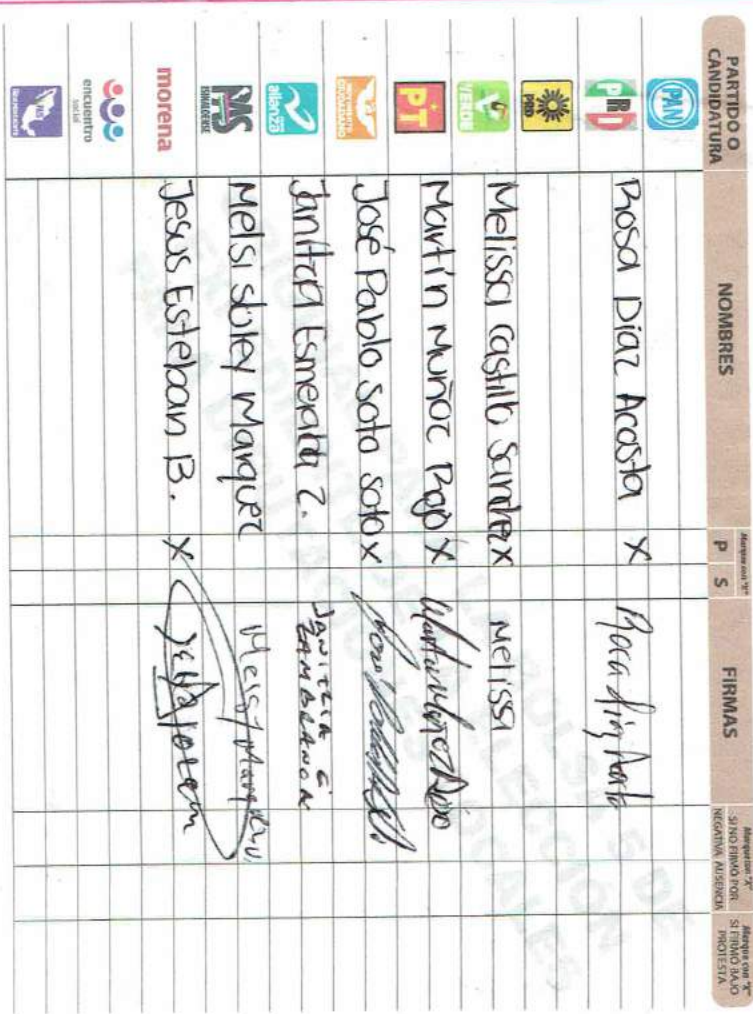 PARTIDO O
CANDIDATURA
NOMBRES
Marque con "X"
P S
FIRMAS
Marque con "X"
SI NO FIRMÓ POR
NEGATIVA AUSENCIA
Marque con "X"
SI FIRMÓ BAJO
PROTESTA
PAN
PRI Rosa Díaz Acosta X
PRD
VERDE Melissa Castillo Sandez X Melissa
PT Martín Muñoz Rojo X
MOVIMIENTO
CIUDADANO
José Pablo Soto Soto X
alianza
Janitzia Esmeralda Z. Janitzia E
ZAMBRANO
PAS
SINALOENSE
Melsi Sbley Marquez
morena Jesus Esteban B. X
encuentro
social
BOLSA 5 DE
ELECCIÓN
LOCALES